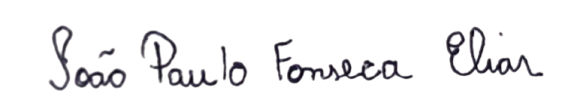 João Paulo Fonseca Elias